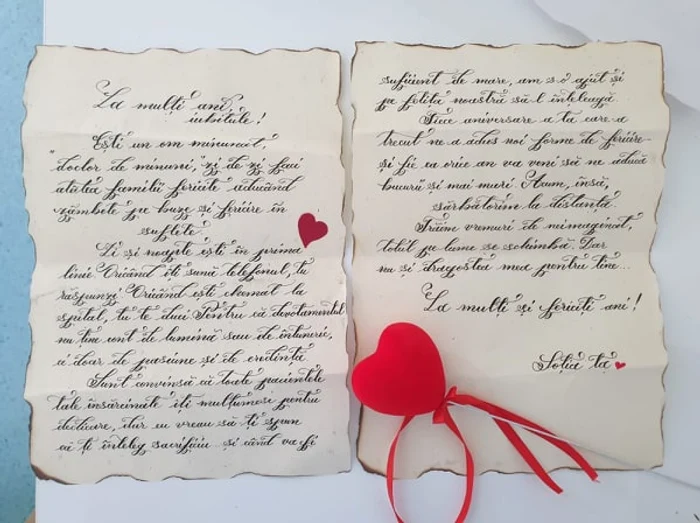 La mulți ani,
iubitule!
Ești un om minunat,
"doctor de minuni," zi de zi faci
atâtea familii fericite aducând
zâmbete pe buze și fericire în
suflete.
Zi și noapte ești în prima
linie. Oricând îți sună telefonul, tu
răspunzi. Oricând ești chemat la
spital, tu te duci. Pentru că devotamentul
nu ține cont de lumină sau de întuneric,
ci doar de pasiune și de credință.
Sunt convinsă că toate pacientele
tale însărcinate îți mulțumesc pentru
dedicare, dar eu vreau să-ți spun
că-ți înțeleg sacrificiu și când va fi
suficient de mare, am s-o ajut și
pe fetița noastră să-l înțeleagă.
Fiece aniversare a ta care a
trecut ne-a adus noi forme de fericire
și fie ca orice an va veni să ne aducă
bucurii și mai mari. Acum, însă,
sărbătorim la distanță.
Trăim vremuri de neimaginat,
totul pe lume se schimbă. Dar
nu și dragostea mea pentru tine...
La mulți și fericiți ani!
Soția ta